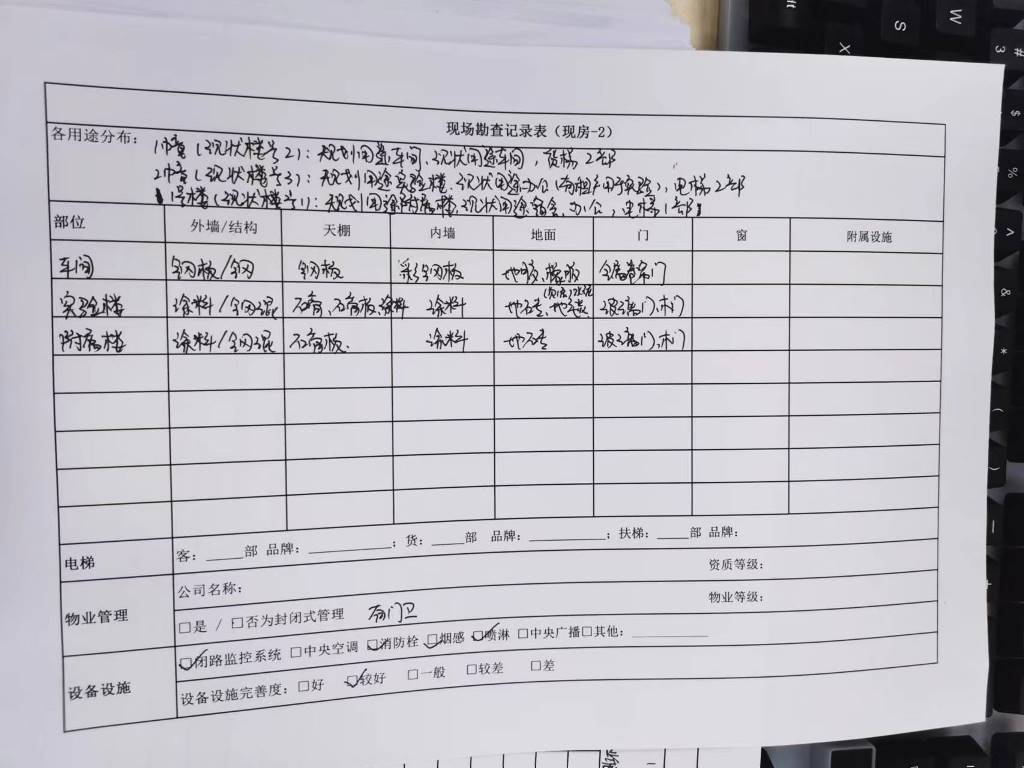 现场勘查记录表（现房-2）
各用途分布：
1幢（现状楼号2）：规划用途车间，现状用途车间，货梯2部
2幢（现状楼号3）：规划用途实验楼，现状用途办公（有租户用于实验），电梯2部
1号楼（现状楼号1）：规划用途附属楼，现状用途宿舍、办公，电梯1部
部位 外墙/结构 天棚 内墙 地面 门 窗 附属设施
车间 钢板/钢 钢板 彩钢板 地胶、橡胶 金属卷帘门
实验楼 涂料/钢混 石膏、石膏板、涂料 涂料 地砖、地毯 玻璃门、木门
附属楼 涂料/钢混 石膏板 涂料 地砖 玻璃门、木门
电梯 客：____部 品牌：__________；货：____部 品牌：_________；扶梯：____部 品牌：
物业管理 公司名称： 资质等级：
□是 / □否为封闭式管理 有门卫 物业等级：
设备设施 ☑闭路监控系统 □中央空调 ☑消防栓 ☑烟感 ☑喷淋 □中央广播□其他：_________
设备设施完善度：□好 ☑较好 □一般 □较差 □差